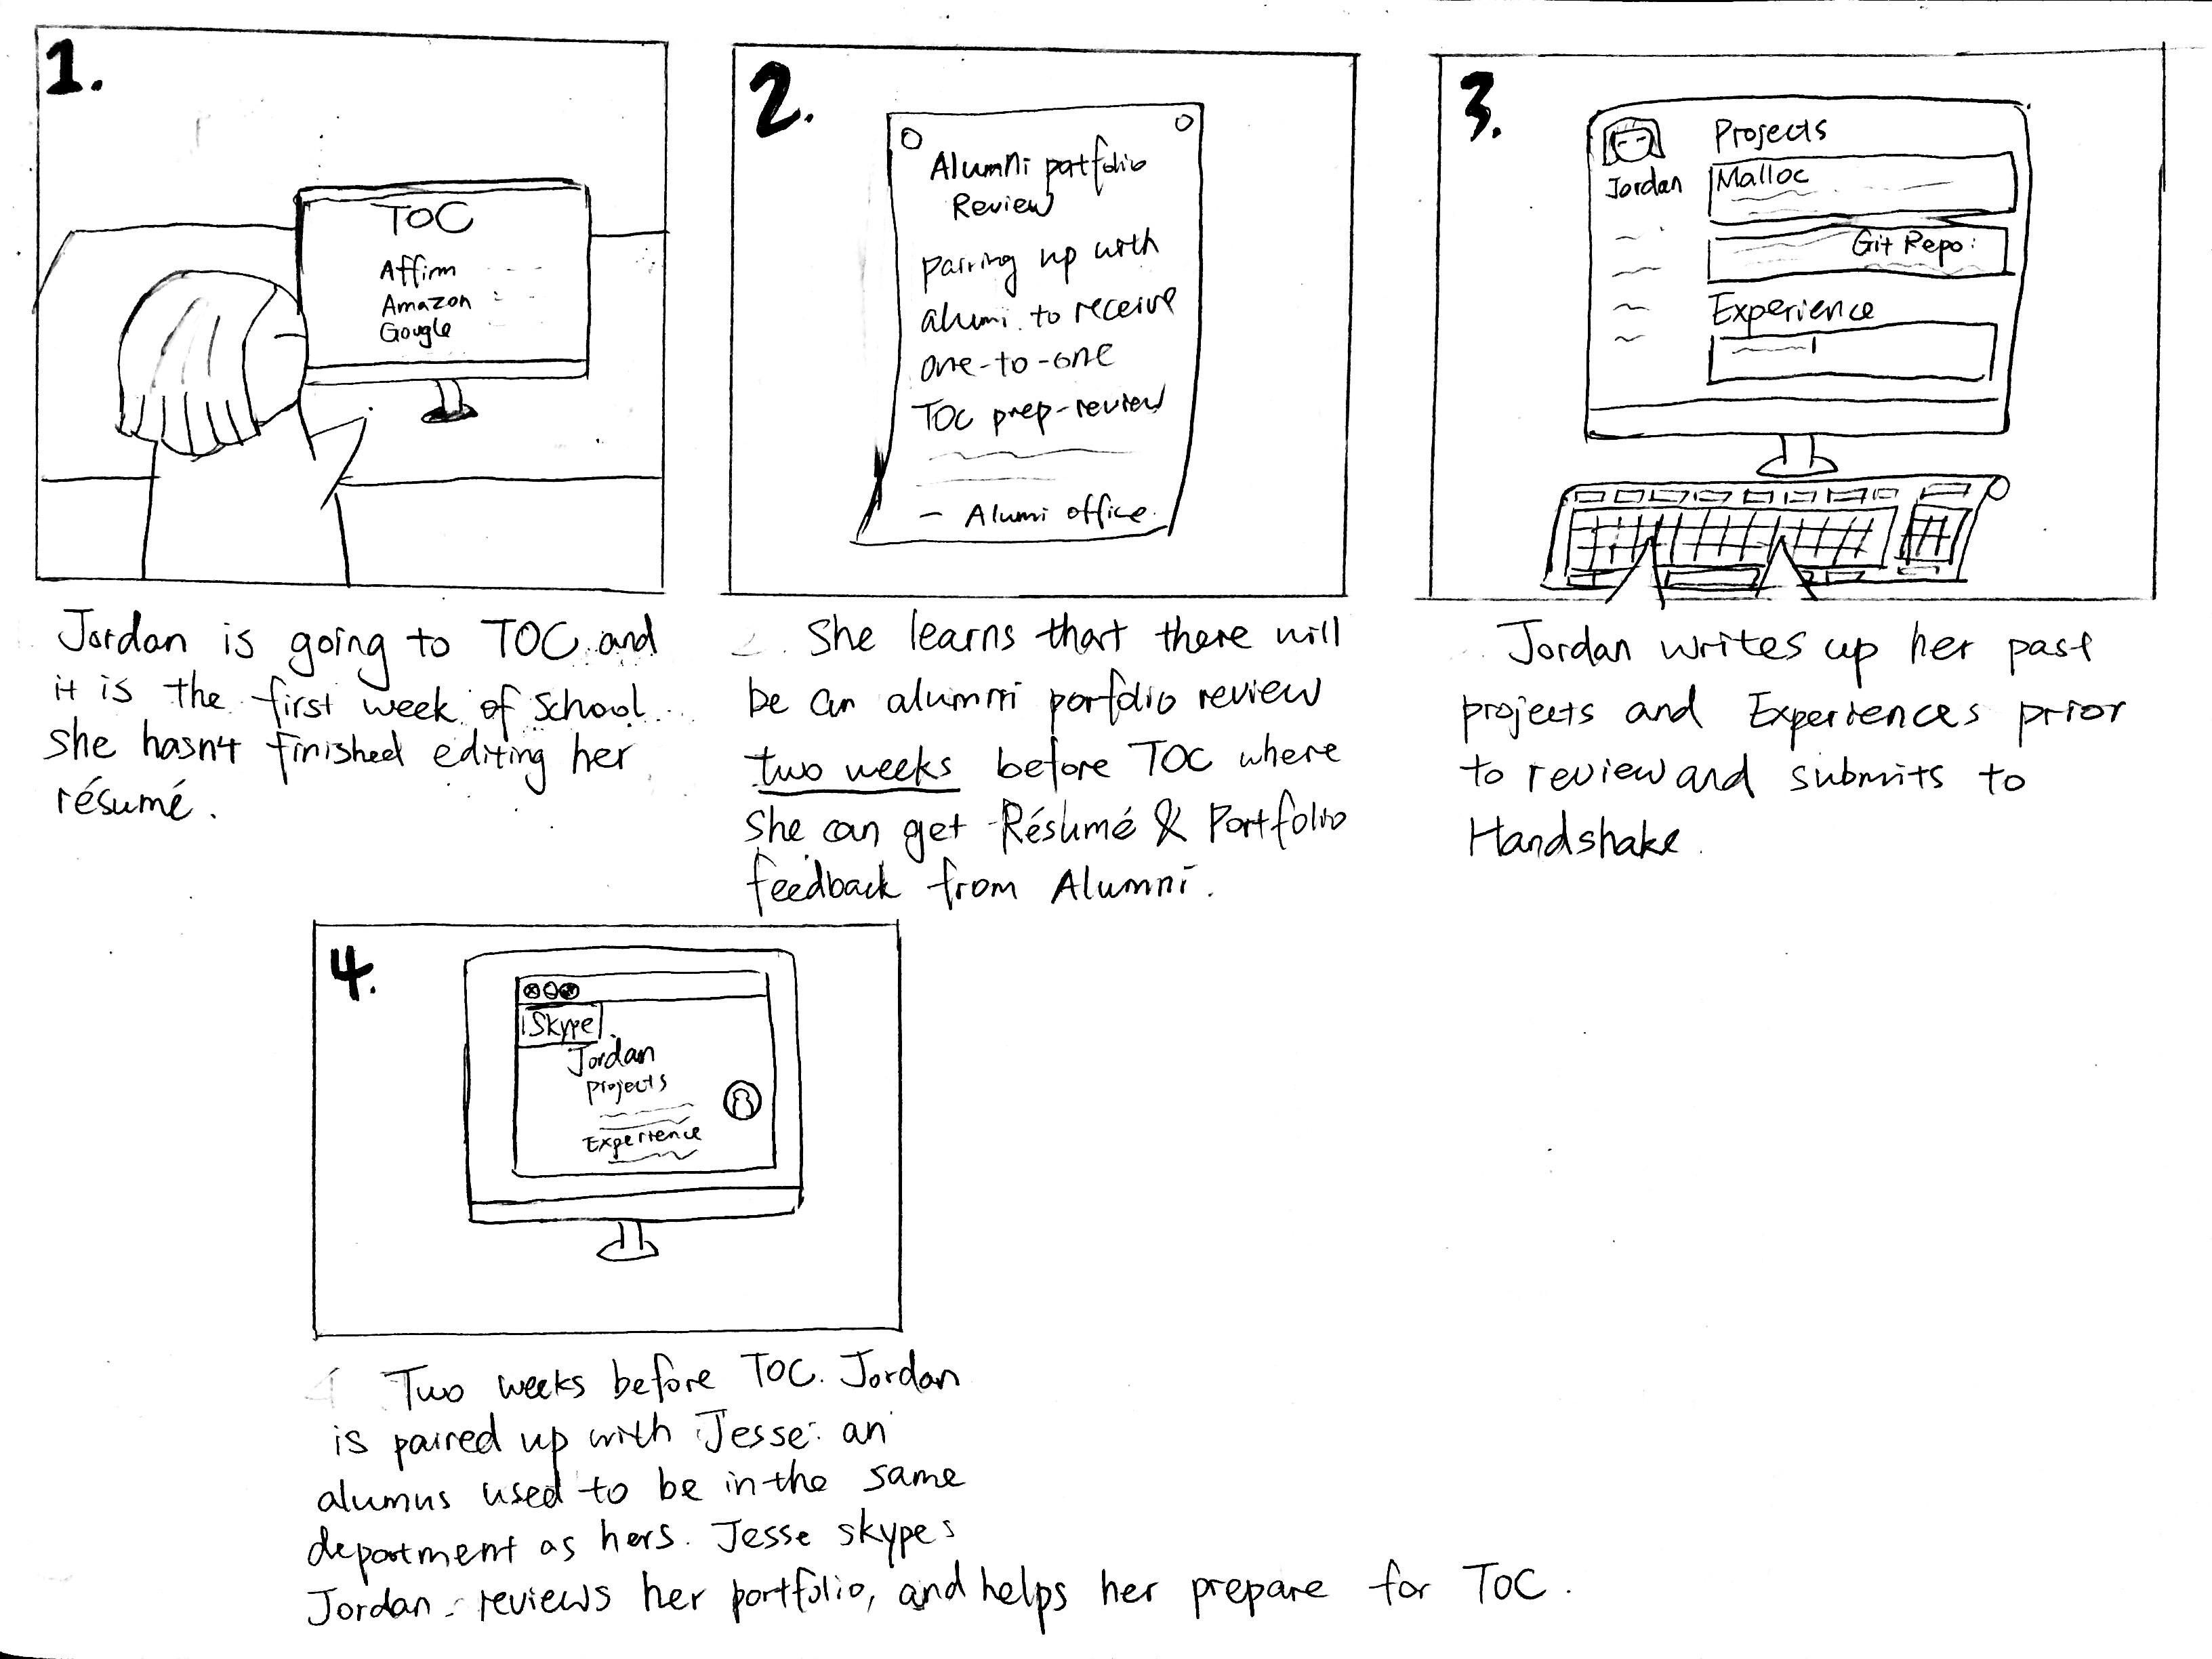 1.
TOC
Affirm
Amazon
Google
Jordan is going to TOC and
it is the first week of School
She hasn't finished editing her
résumé.
2.
Alumni portfolio
Review
pairing up with
alumi to receive
one-to-one
TOC prep-review
— Alumi office.
She learns that there will
be an alumni porfolio review
two weeks before TOC where
She can get Résumé & Portfolio
feedback from Alumni.
3.
Jordan
Projects
Malloc
Git Repo:
Experience
Jordan writes up her past
projects and Experiences prior
to review and submits to
Handshake.
4.
Skype
Jordan
Projects
Experience
Two weeks before TOC. Jordan
is paired up with Jesse: an
alumus used to be in the same
department as hers. Jesse skypes
Jordan - reviews her portfolio, and helps her prepare for TOC.